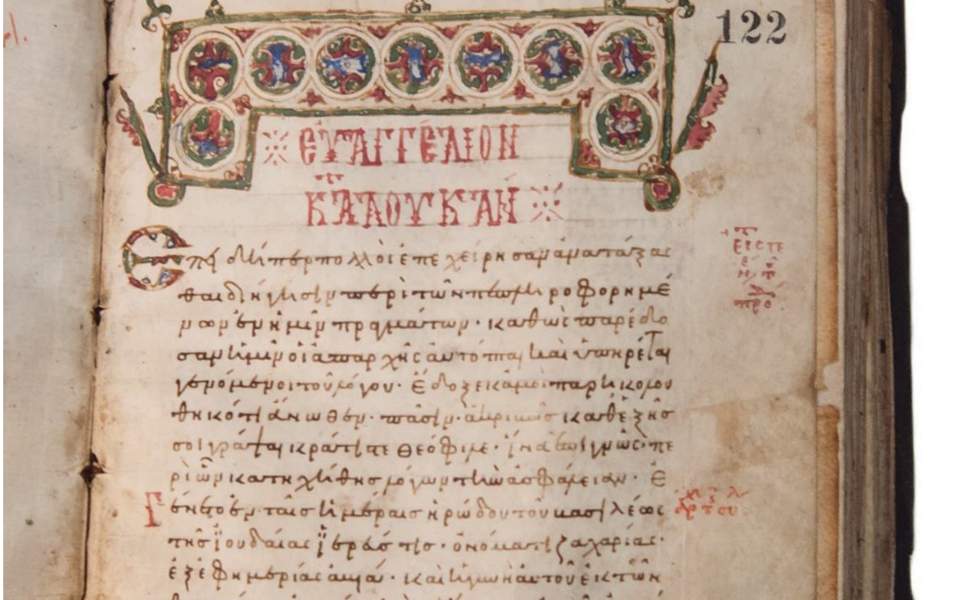 122
ΕΥΑΓΓΕΛΙΟΝ
ΚΑΤΑ ΛΟΥΚΑΝ
Ἐπειδήπερ πολλοὶ ἐπεχείρησαν ἀνατάξας
θαι διήγησιν περὶ τῶν πεπληροφορημέ
νων ἐν ἡμῖν πραγμάτων· καθὼς παρέδο
σαν ἡμῖν οἱ ἀπαρχῆς αὐτόπται καὶ ὑπηρέται
γενόμενοι τοῦ λόγου· ἔδοξε κἀμοὶ παρηκολου
θηκότι ἄνωθεν· πᾶσιν· ἀκριβῶς καθεξῆς
σοι γράψαι κράτιστε Θεόφιλε· ἵνα ἐπιγνῷς· πε
ρὶ ὧν κατηχήθης λόγων τὴν ἀσφάλειαν· Ἐ
γένετο ἐν ταῖς ἡμέραις ἡρώδου τοῦ βασιλέως
τῆς ἰουδαίας ἱερεύς τις· ὀνόματι ζαχαρίας·
ἐξ ἐφημερίας ἀβιά· καὶ ἡ γυνὴ αὐτοῦ ἐκ τῶν